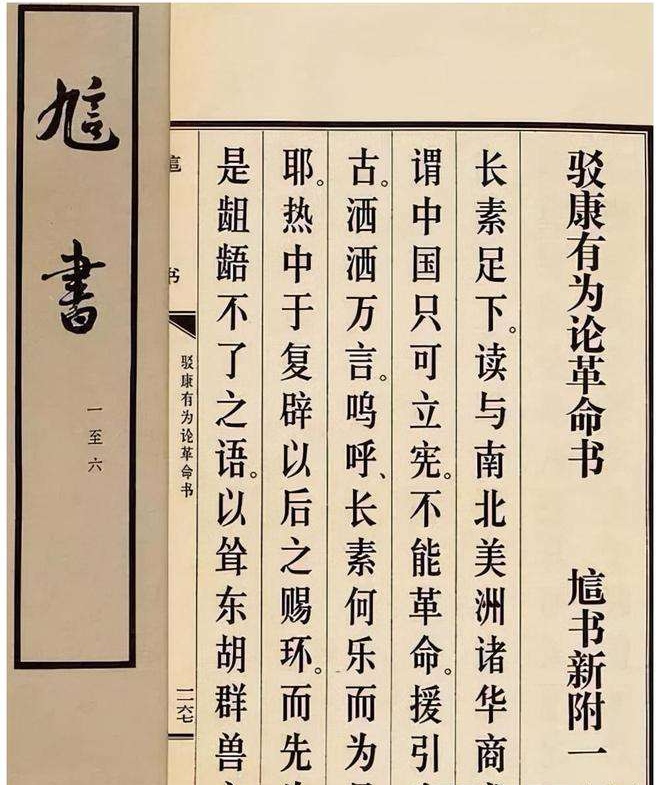 訄書
一至六
驳康有为论革命书 訄书新附一
长素足下。读与南北美洲诸华商
谓中国只可立宪。不能革命。援引
古。洒洒万言。呜呼、长素何乐而为
耶。热中于复辟以后之赐环。而先
是龃龉不了之语。以耸东胡群兽
书
驳康有为论革命书